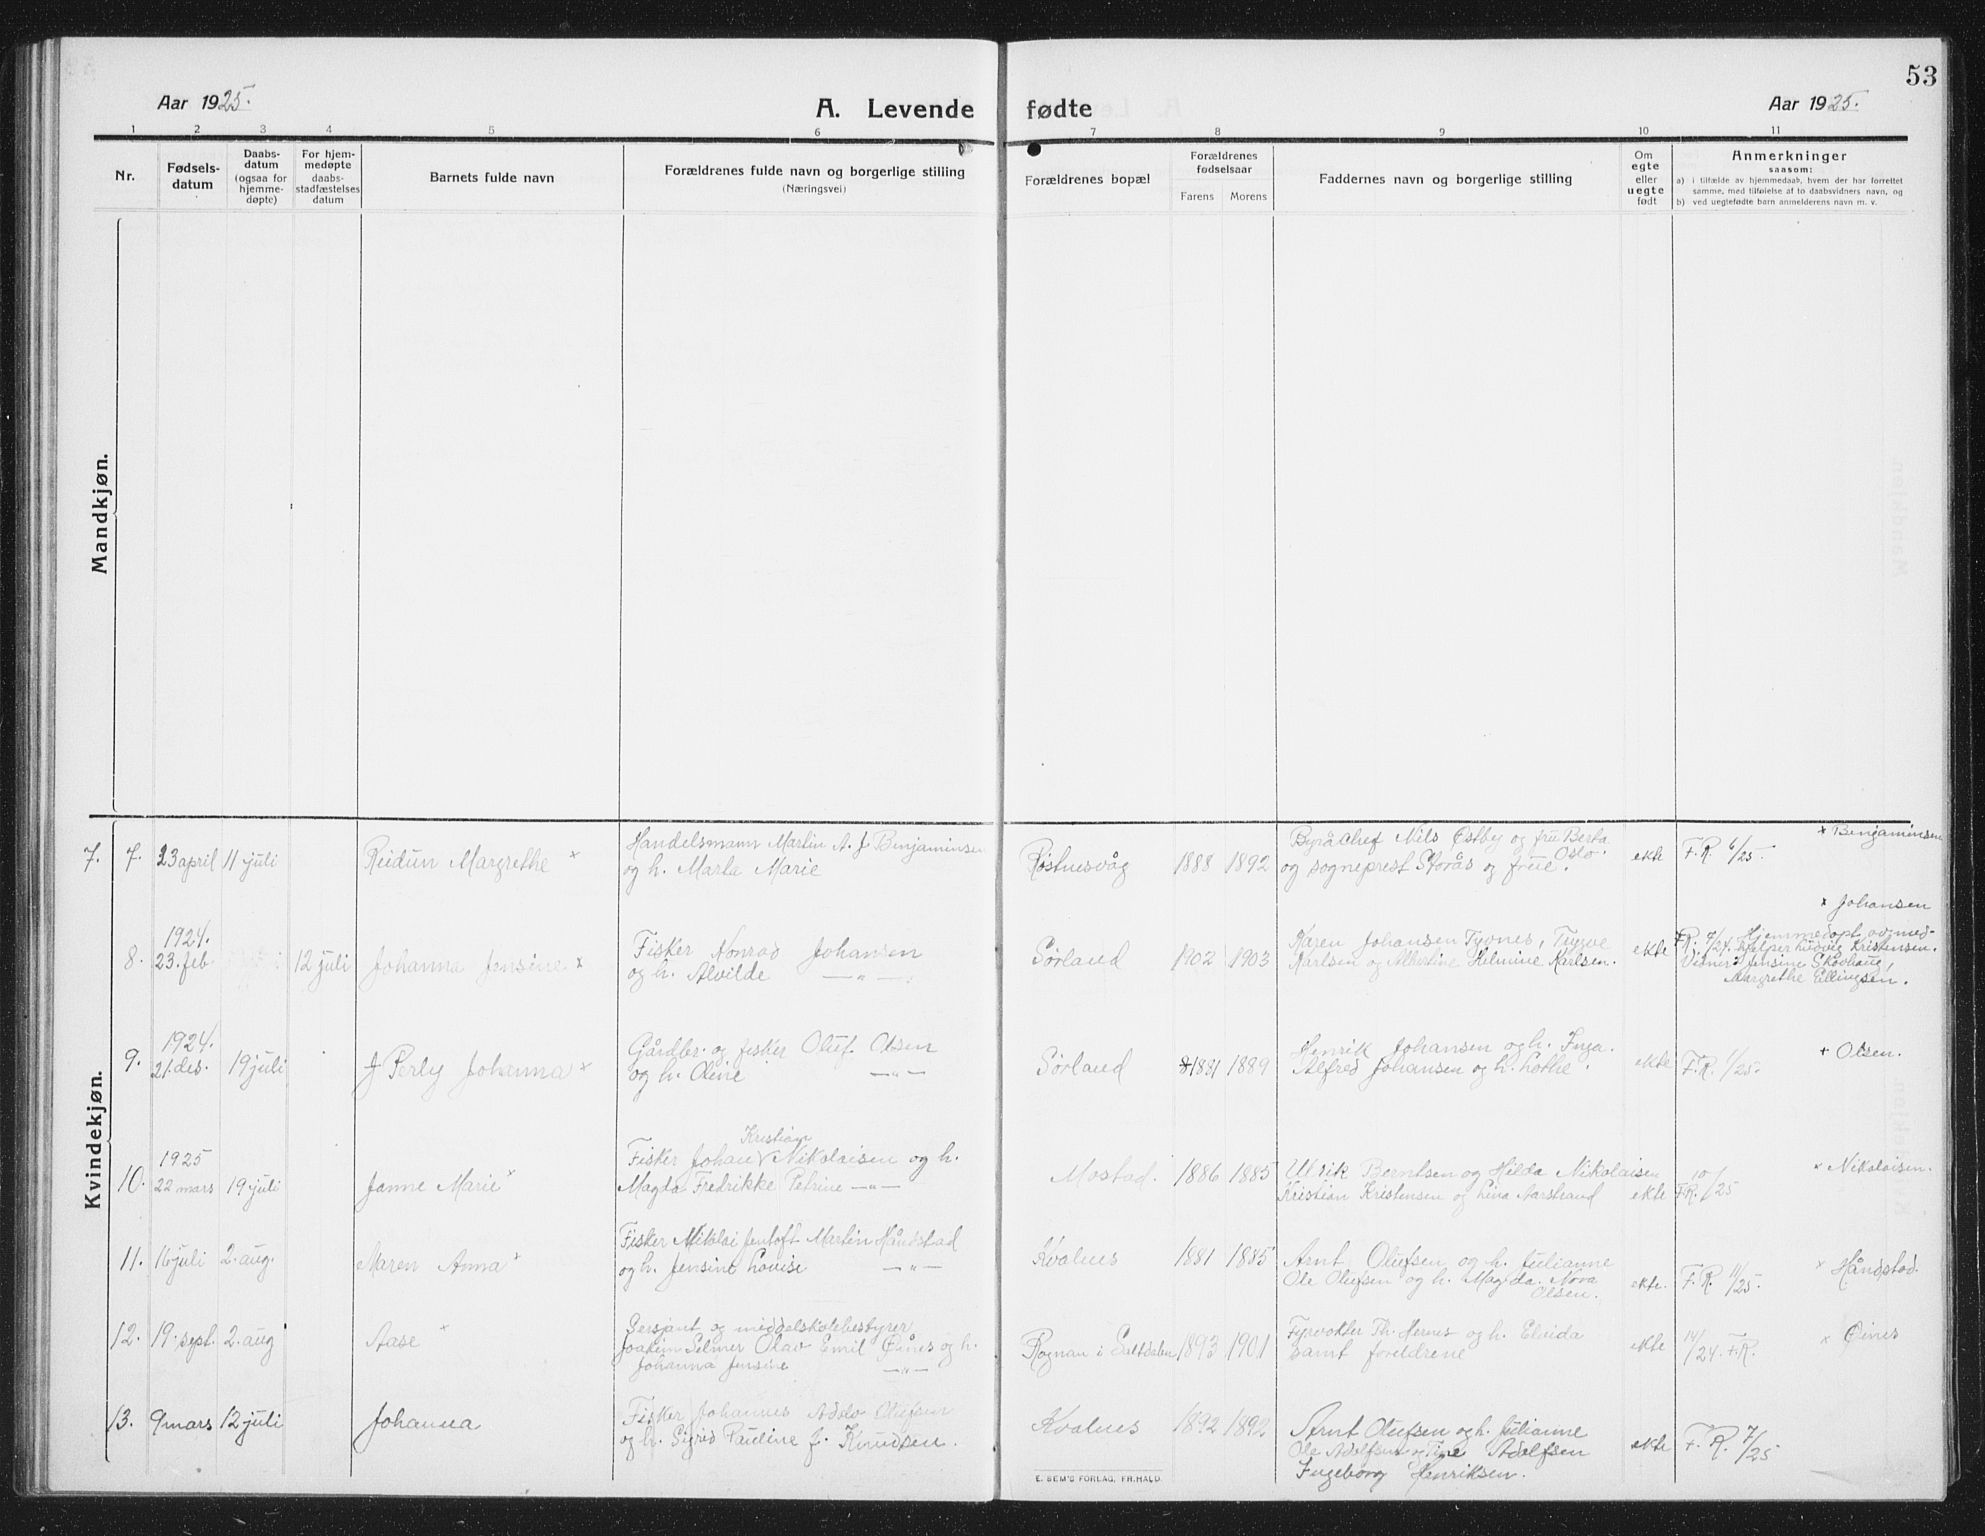 53
Aar 1925.
A. Levende fødte
Aar 1925.
1 2 3 4 5 6 7 8 9 10 11
Nr.
Fødsels-
datum
Daabs-
datum
(ogsaa for
hjemme-
døpte)
For hjem-
medøpte
daabs-
stadfæstelses
datum
Barnets fulde navn
Forældrenes fulde navn og borgerlige stilling
(Næringsvei)
Forældrenes bopæl
Forældrenes
fødselsaar
Farens Morens
Faddernes navn og borgerlige stilling
Om
egte
eller
uegte
født
Anmerkninger
saasom:
a) i tilfælde av hjemmedaab, hvem der har forrettet
samme, med tilføielse af to daabsvidners navn, og
b) ved uegtefødte barn anmelderens navn m. v.
Mandkjøn.
Kvindekjøn.
7. 7. 23 april 11 juli Reidun Margrethe x
Handelsmann Martin A. J. Benjaminsen
og h. Marta Marie
Røstnesvåg 1888 1892
Byråchef Nils Østby og fru Berta
Oslo.
og sogneprest Storås og frue.
ekte F. R. 6/25. x Benjaminsen
8. 1924.
23. feb. 12 juli Johanna Jensine x
Fisker Konrad Johansen
og h. Alvilde —"—
Sørland 1902 1903
Karen Johansen Tyvnes, Trygve
Karlsen og Albertine Helmine Karlsen.
ekte
x Johansen
F.R. 7/24. Hjemmedøpt av med-
hjelper Ludvig Kristensen.
Vidner: Jensine Skovhaug,
Margrethe Ellingsen.
9. 1924.
21. des. 19 juli J Perly Johanna x
Gårdbr. og fisker Oluf Olsen
og h. Oline —"—
Sørland 1881 1889
Henrik Johansen og h. Inga.
Alfred Johansen og h. Lothe.
ekte F.R. 1/25. + Olsen.
10. 1925
22 mars 19 juli Janne Marie x
Kristian
Fisker Johan V Nikolaisen og h.
Magda Fredrikke Petrine —"—
Mostad. 1886 1885
Ulrik Berntsen og Hilda Nikolaisen
Kristian Kristensen og Lina Aarstrand
ekte F.R. 10/25 x Nikolaisen.
11. 16 juli 2. aug. Maren Anna x
Fisker Nikolai Jentoft Martin Håndstad
og h. Jensine Lovise —"—
Kvalnes 1881 1885
Arnt Olufsen og h. Julianne
Ole Olufsen og h. Magda. Nora
Olsen.
ekte. F. R. 11/25. x Håndstad.
12. 19. sept. 2. aug Aase x
Sersjant og middelskolebestyrer
Joakim Selmer Olav Emil Øines og h.
Johanna Jensine —"—
Rognan i Saltdalen 1893 1901
Fyrvokter Th. Hernes og h. Elvida
samt foreldrene
ekte 14/24. F.R. x Øines
13. 9 mars 12 juli Johanna
Fisker Johannes Adolv Olufsen
og h. Sigrid Pauline J. Knudsen.
Kvalnes 1892 1892
Arnt Olufsen og h. Julianne
Ole Adolfsen og Tine Adolfsen
Ingeborg Henriksen.
ekte F. R. 7/25
E. SEM'S FORLAG, FR.HALD.